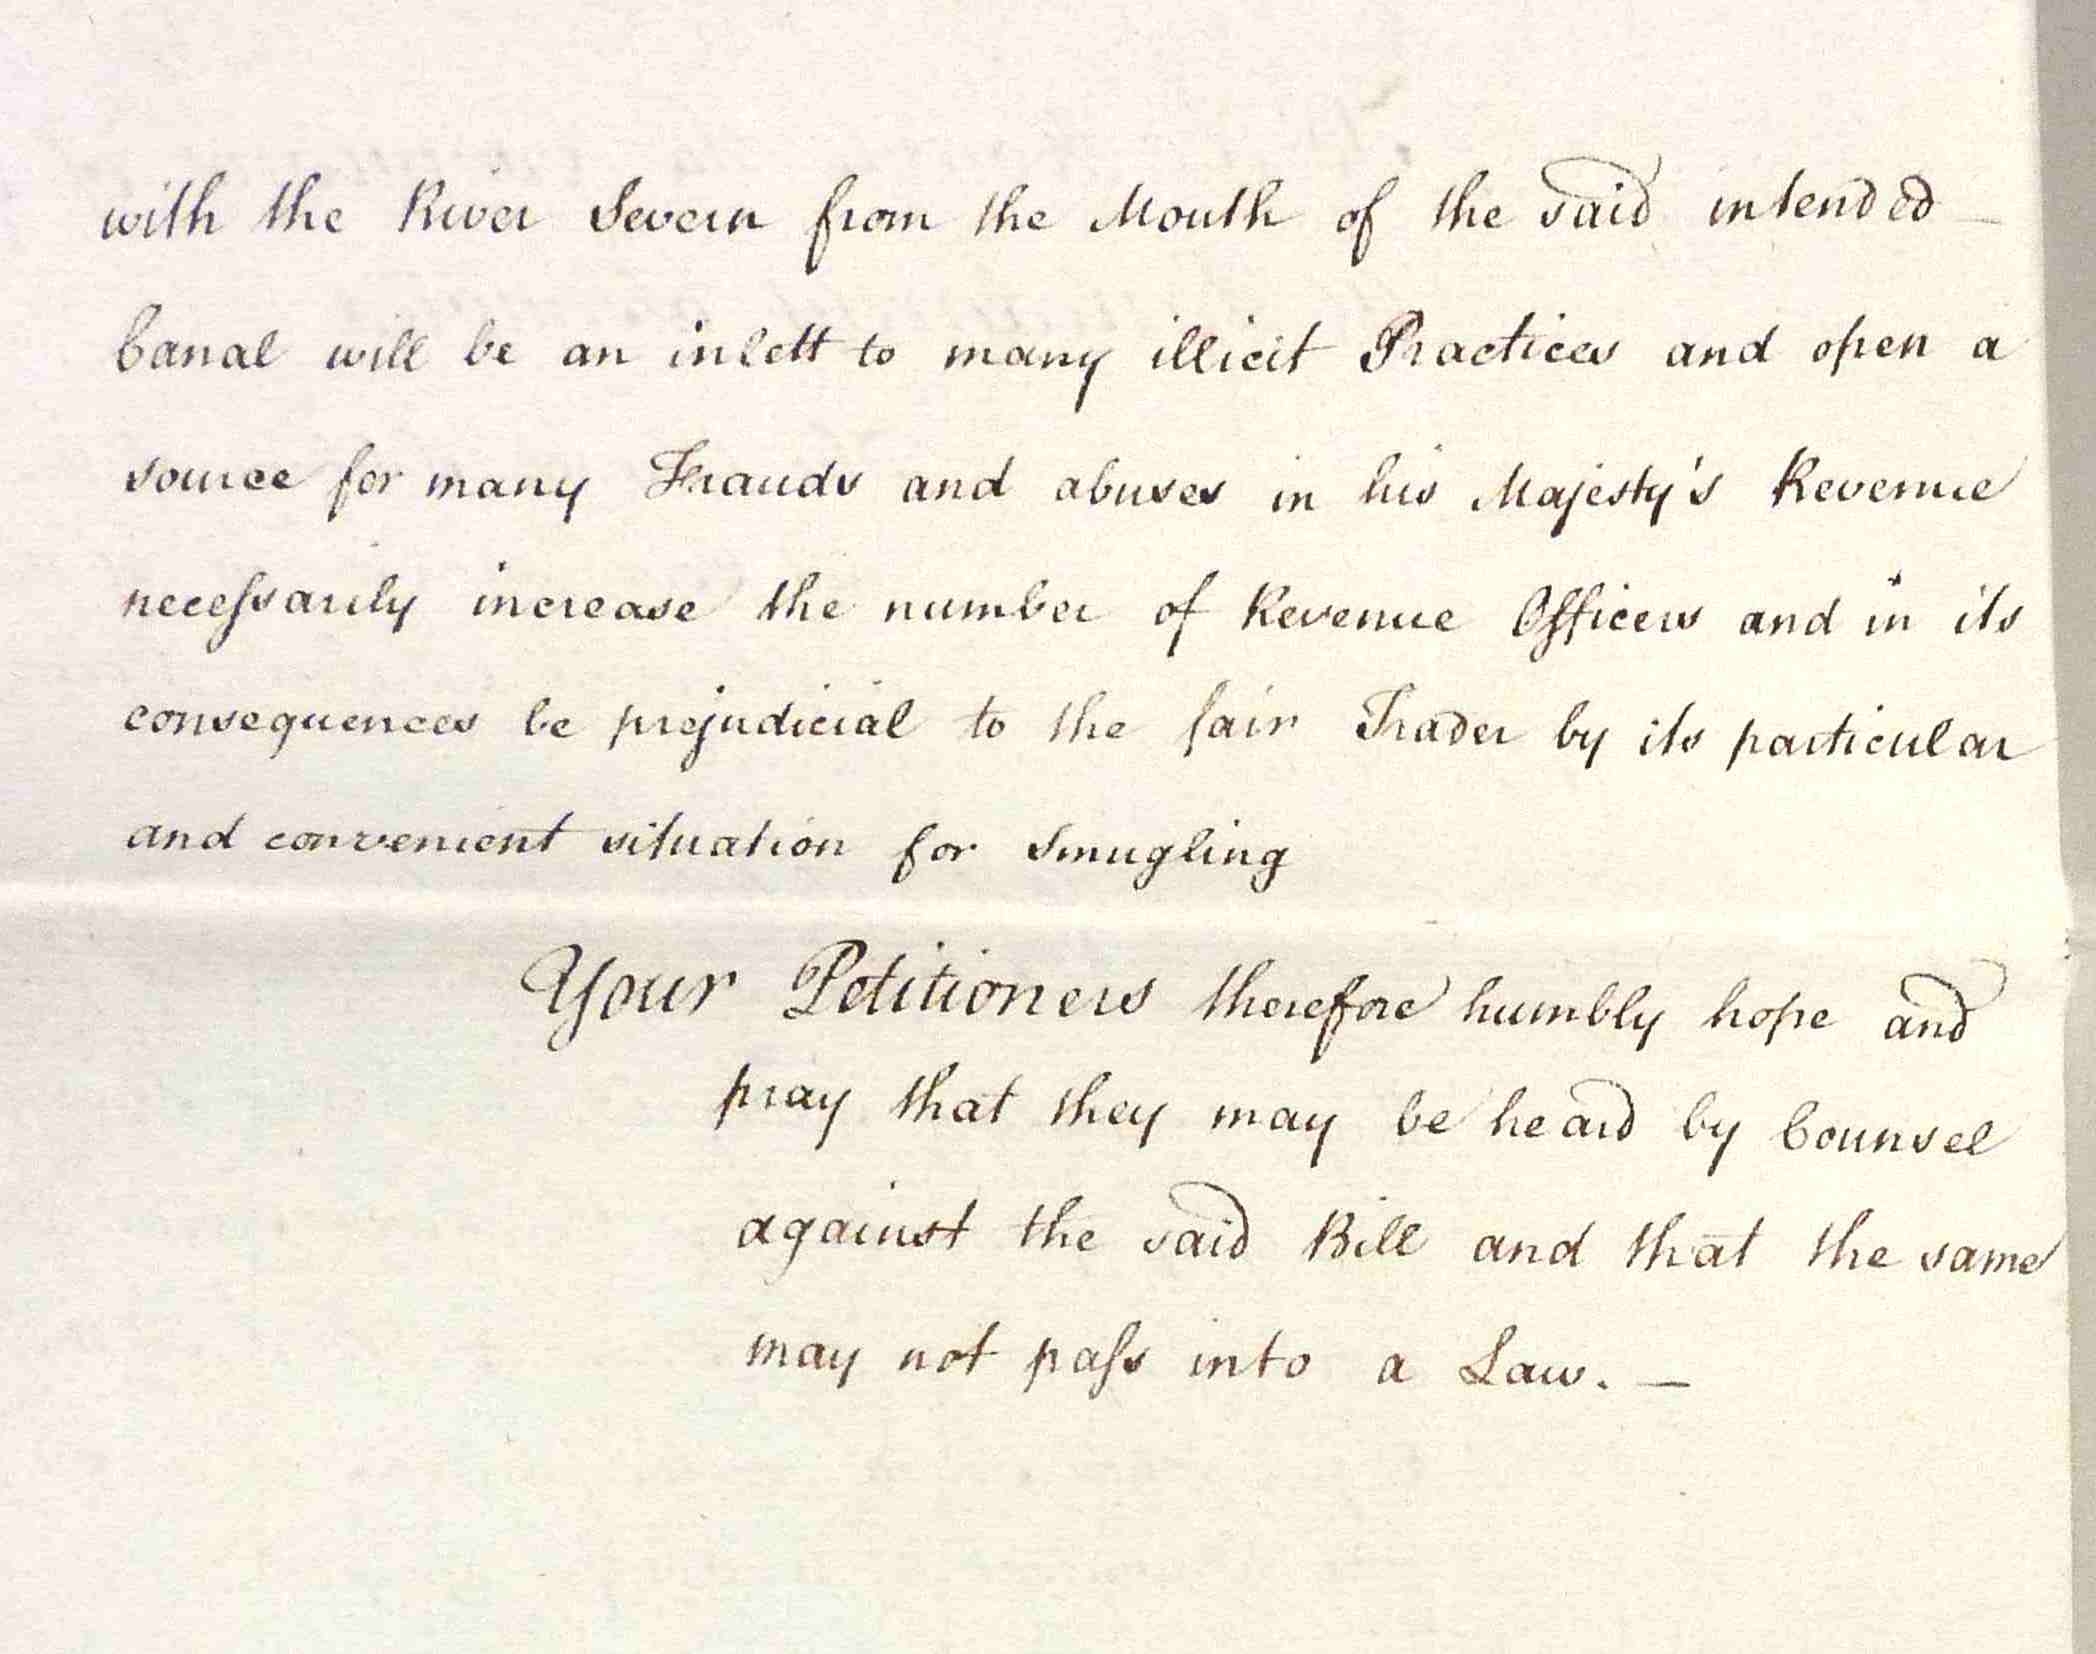 with the River Severn from the Mouth of the said intended –
Canal will be an inlett to many illicit Practices and open a
source for many Frauds and abuses in his Majesty's Revenue
neceſsarily increase the number of Revenue Officers and in its
consequences be prejudicial to the fair Trader by its particular
and convenient situation for Smugling
Your Petitioners therefore humbly hope and
pray that they may be heard by Counsel
against the said Bill and that the same
may not paſs into a Law. –